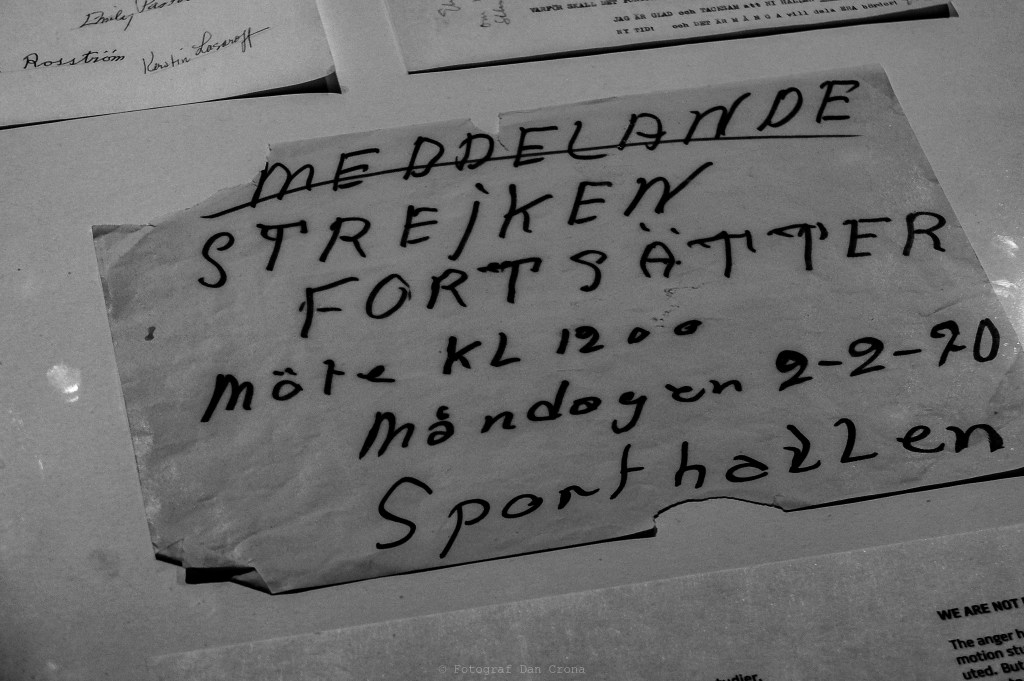 Emily
Rosström Kerstin
VARFÖR SKALL DET
JAG ÄR GLAD och TACKSAM att NI HÅLLER
NY TID! och DET ÄR M Å N G A vill dela ERA bördor!
MEDDELANDE
STREJKEN
FORTSÄTTER
Möte KL 1200
Måndagen 2-2-70
Sporthallen
WE ARE NOT
The anger h
motion stu
uted. But
studier.
© Fotograf Dan Crona